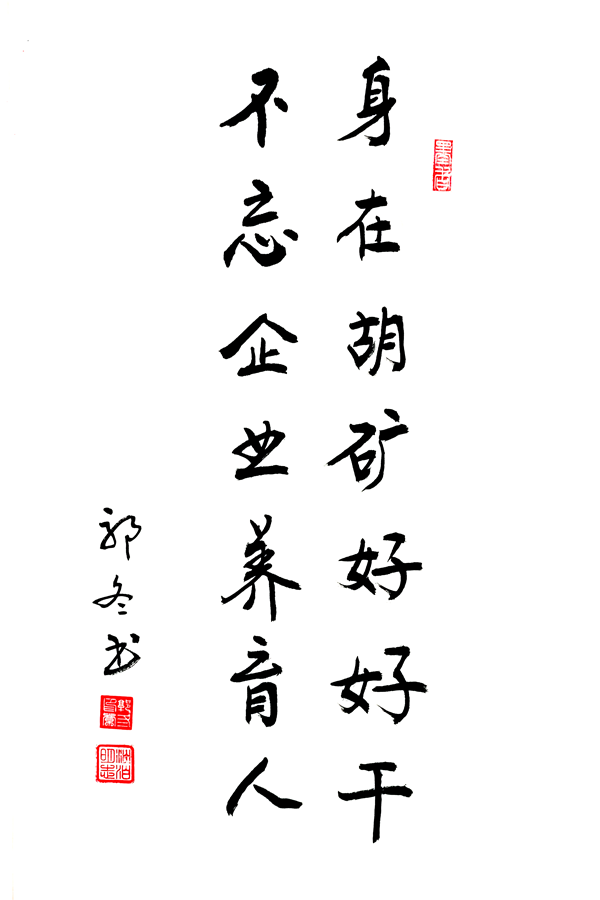 身在胡矿好好干
不忘企业养育人
郭冬书